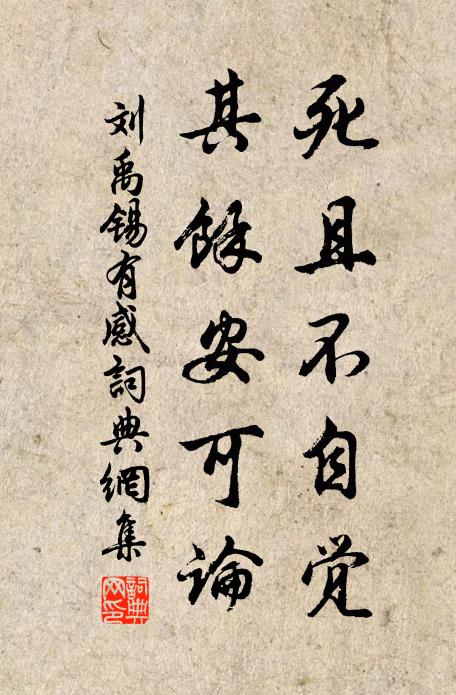 死且不自觉
其餘安可論
刘禹锡有感詞典網集
詞典網印